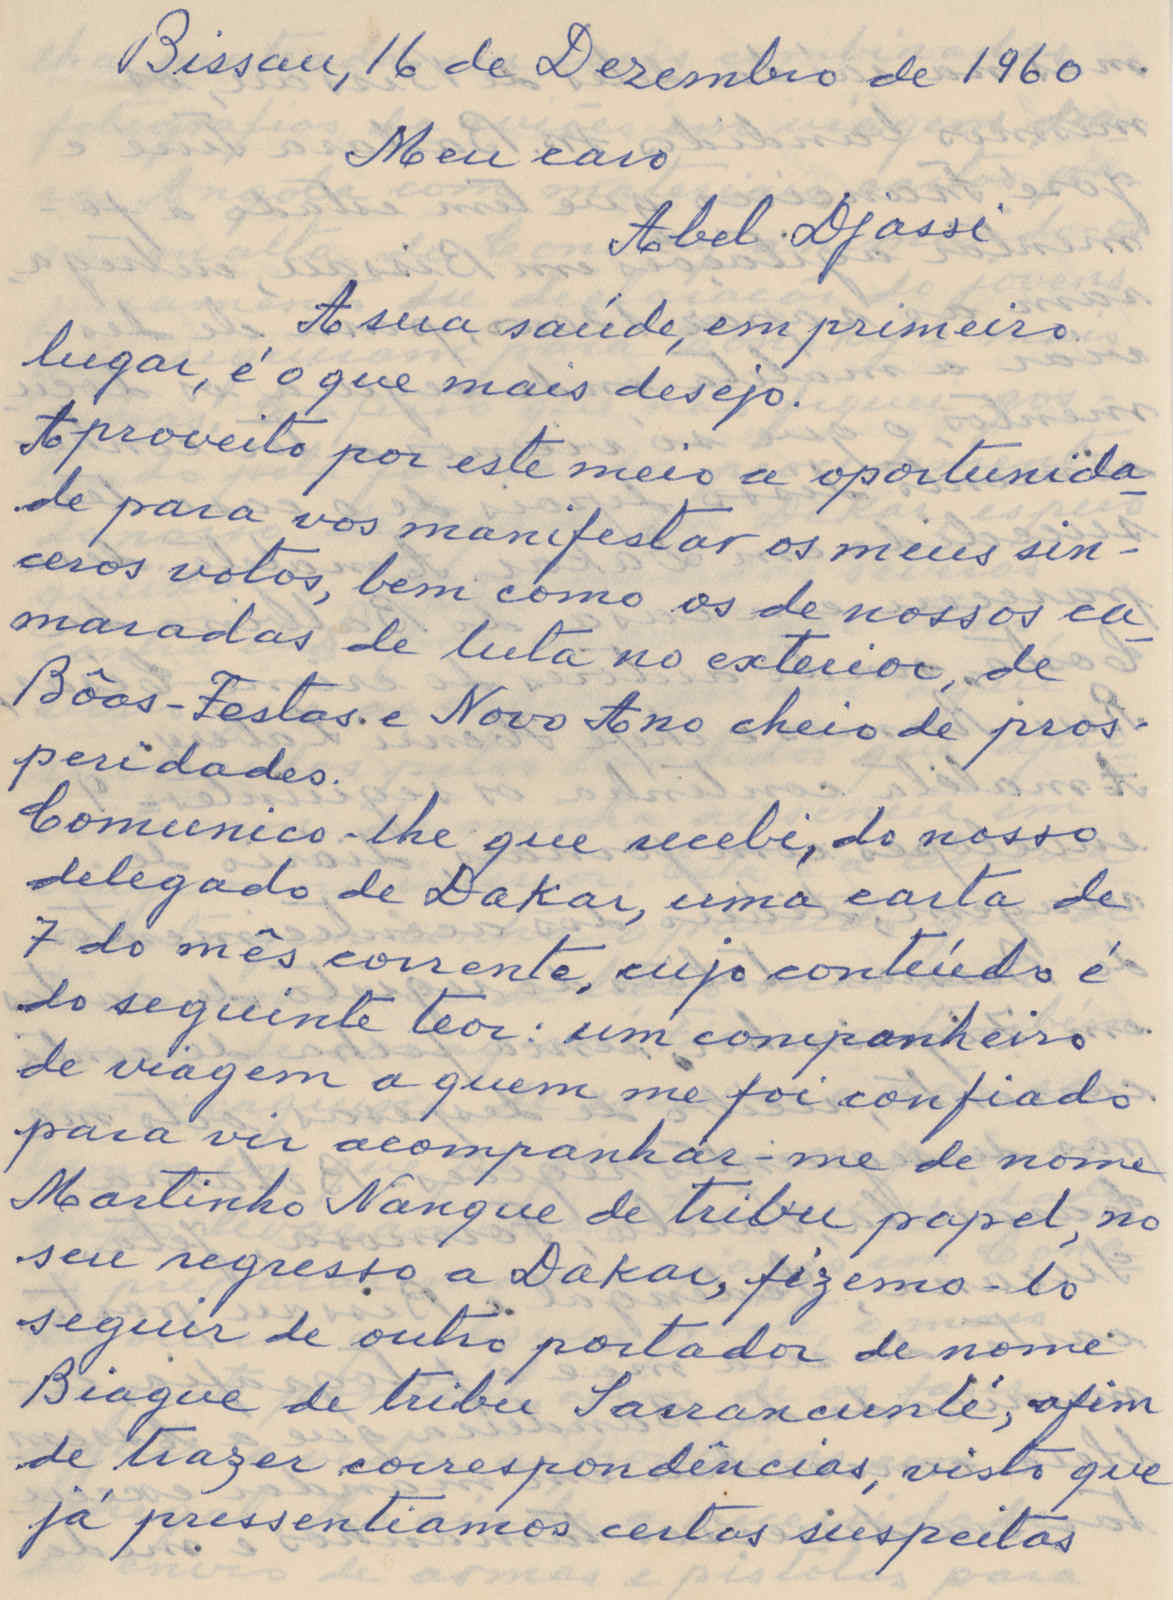 Bissau, 16 de Dezembro de 1960
Meu caro
Abel Djassi
A sua saúde, em primeiro
lugar, é o que mais desejo.
Aproveito por este meio a oportunida_
de para vos manifestar os meus sin-
ceros votos, bem como os de nossos ca_
maradas de luta no exterior, de
Bôas-Festas e Novo Ano cheio de pros-
peridades.
Comunico-lhe que recebi, do nosso
delegado de Dakar, uma carta de
7 do mês corrente, cujo contéudo é
do seguinte teor: um companheiro
de viagem a quem me foi confiado
para vir acompanhár-me de nome
Martinho Nanque de tribu papel, no
seu regresso a Dakar, fizemo-lo
seguir de outro portador de nome
Biague de tribu Sarrancunlé, afim
de trazer correspondências, visto que
já pressentiamos certas suspeitas